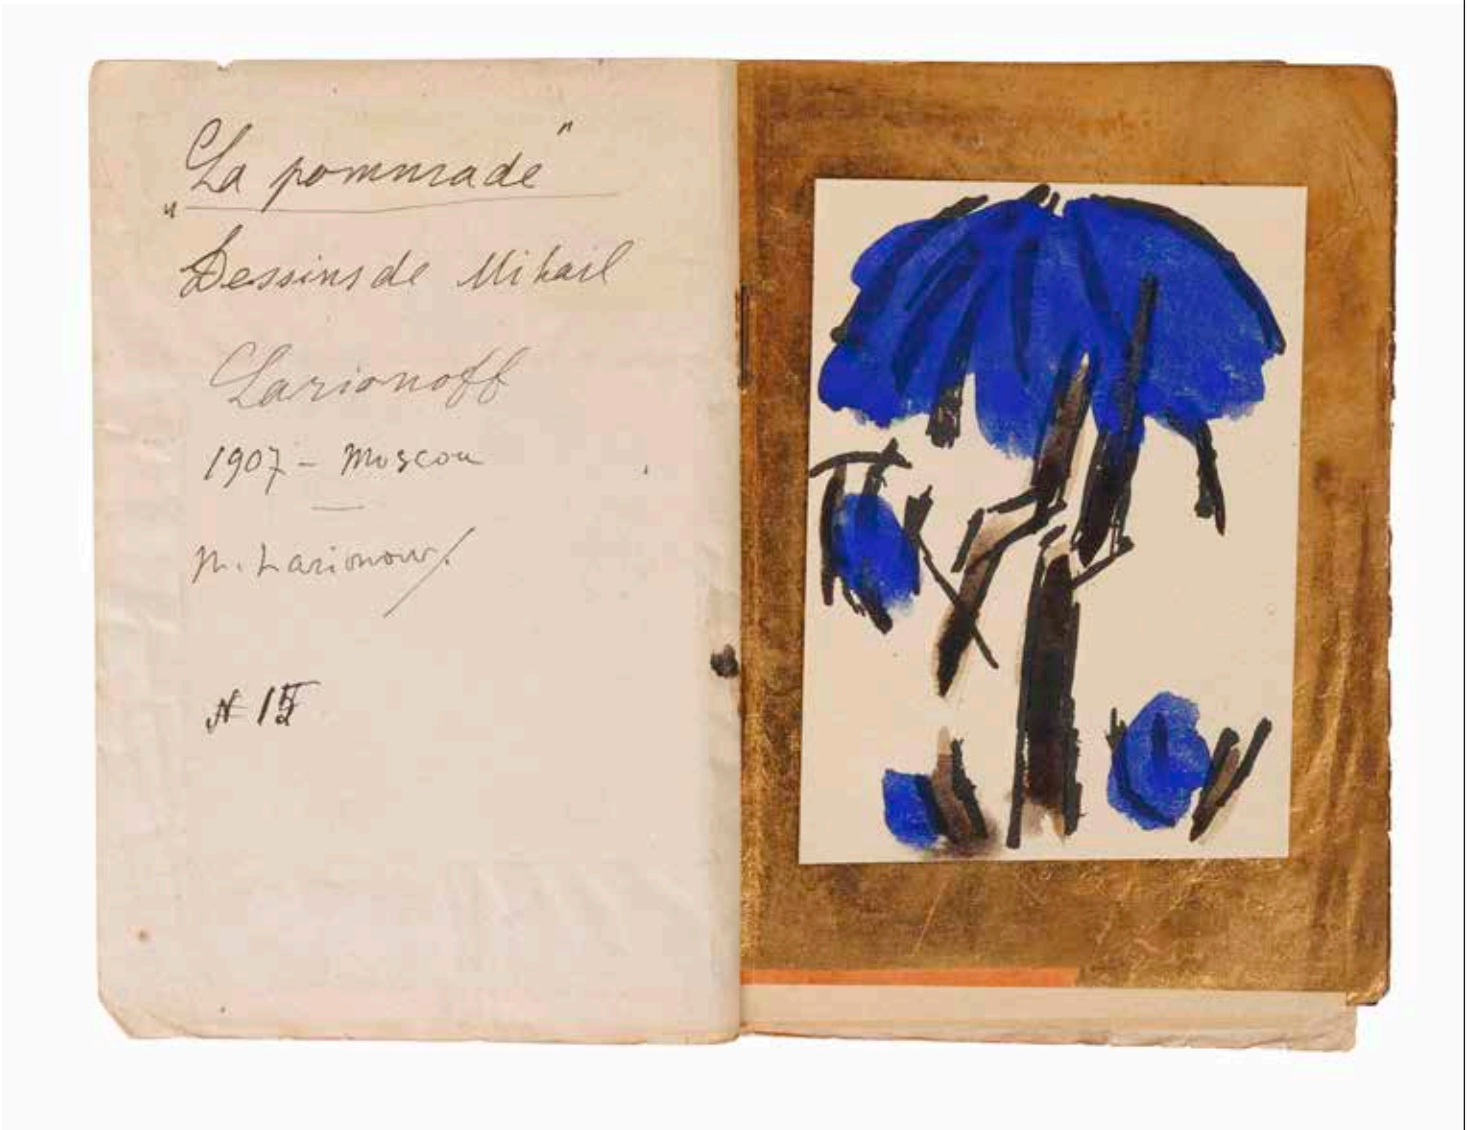 "La pommade"
Dessins de Mihail
Larionoff
1907 - Moscou
M. Larionow.